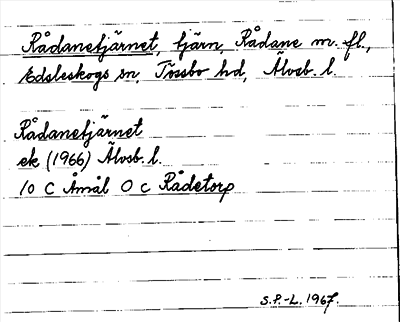 Rådanetjärnet, tjärn, Rådane m. fl.,
Edsleskogs sn, Tössbo hd, Älvsb. l.
Rådanetjärnet
ek (1966) Älvsb. l.
10 C Åmål O c Rådetorp
S.P.-L. 1967.